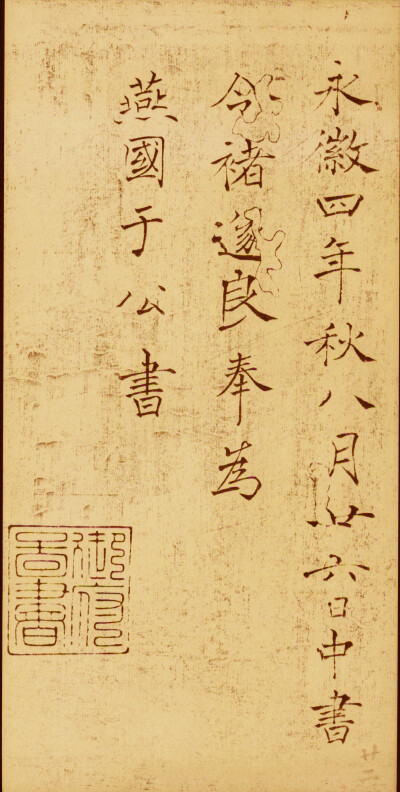 永徽四年秋八月廿六日中書
令褚遂良奉為
燕國于公書
廿二